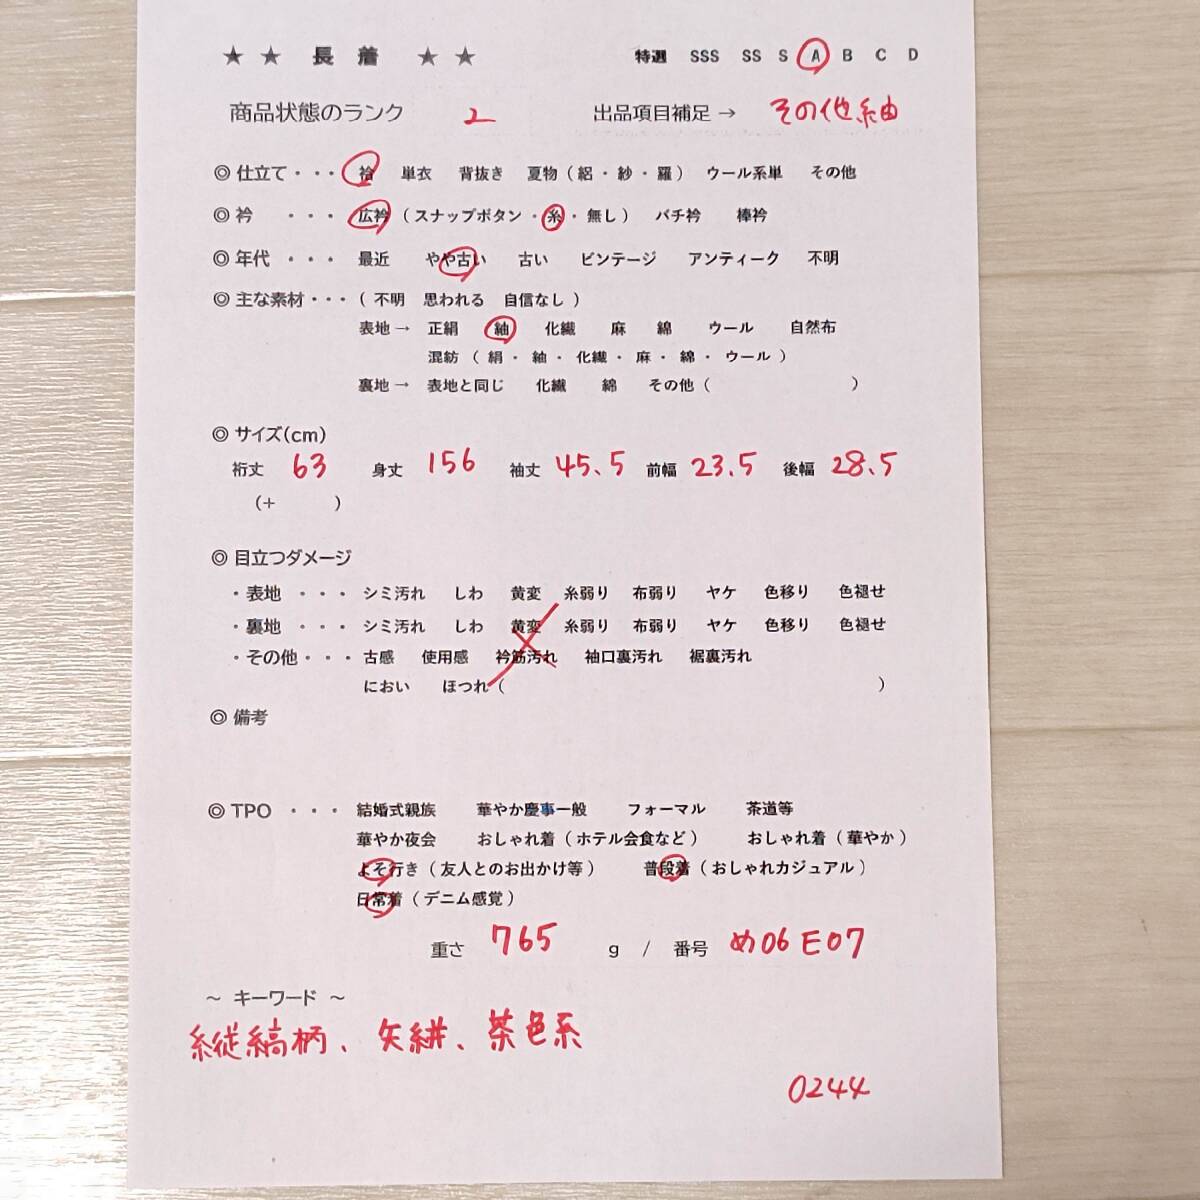 ★ ★ 長 着 ★ ★ 特選 SSS SS S A B C D
商品状態のランク 2 出品項目補足 → その他紬
◎ 仕立て・・・ 袷 単衣 背抜き 夏物（ 絽 ・ 紗 ・ 羅 ） ウール系単 その他
◎ 衿 ・・・ 広衿 （ スナップボタン ・ 糸 ・ 無し ） バチ衿 棒衿
◎ 年代 ・・・ 最近 やや古い 古い ビンテージ アンティーク 不明
◎ 主な素材・・・（ 不明 思われる 自信なし ）
表地 → 正絹 紬 化繊 麻 綿 ウール 自然布
混紡 （ 絹 ・ 紬 ・ 化繊 ・ 麻 ・ 綿 ・ ウール ）
裏地 → 表地と同じ 化繊 綿 その他（ ）
◎ サイズ(cm)
裄丈 63 身丈 156 袖丈 45.5 前幅 23.5 後幅 28.5
（＋ ）
◎ 目立つダメージ
・表地 ・・・ シミ汚れ しわ 黄変 糸弱り 布弱り ヤケ 色移り 色褪せ
・裏地 ・・・ シミ汚れ しわ 黄変 糸弱り 布弱り ヤケ 色移り 色褪せ
・その他・・・ 古感 使用感 衿筋汚れ 袖口裏汚れ 裾裏汚れ
におい ほつれ（ ）
◎ 備考
◎ TPO ・・・ 結婚式親族 華やか慶事一般 フォーマル 茶道等
華やか夜会 おしゃれ着（ ホテル会食など ） おしゃれ着（ 華やか ）
よそ行き（ 友人とのお出かけ等 ） 普段着（ おしゃれカジュアル ）
日常着（ デニム感覚 ）
重さ 765 g / 番号 め06E07
～ キーワード ～
縦縞柄、矢絣、茶色系
0244